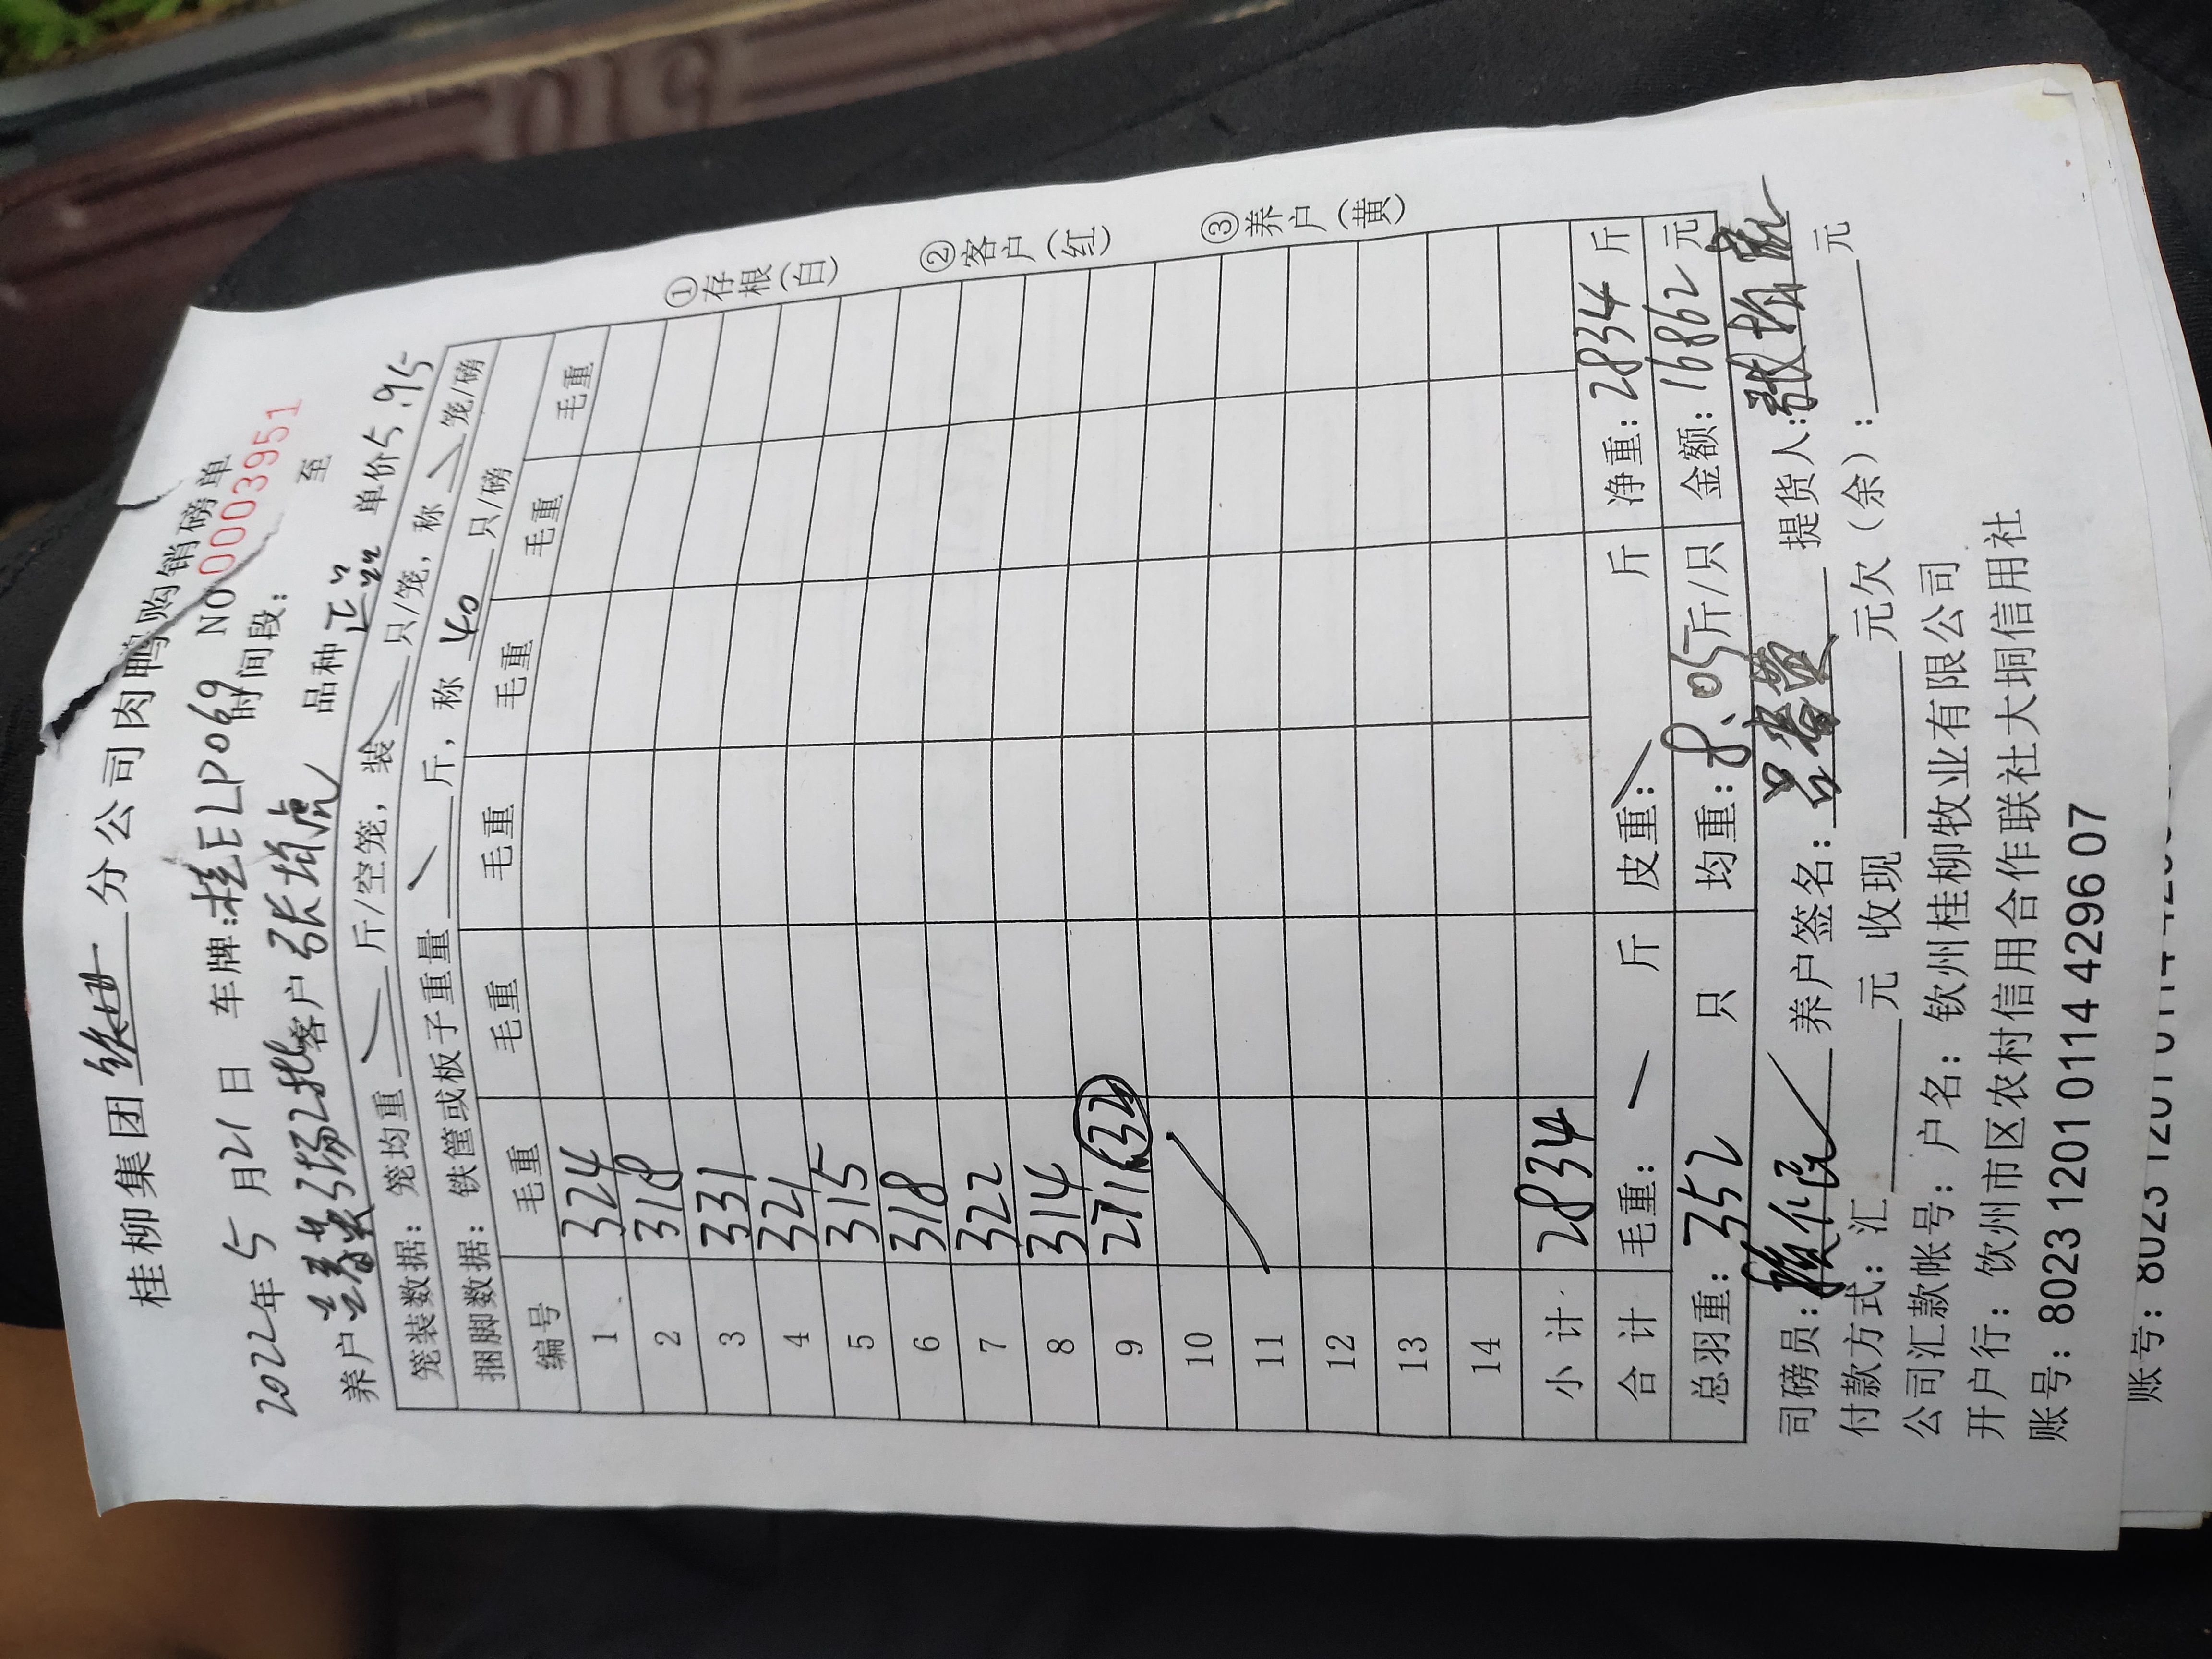 桂柳集团 分公司肉鸭购销磅单
2022年5月21日 车牌:桂ELP069 NO 00003951
时间段: 至
养户 兰春英场2批 客户 张均虎 品种 正品 单价5.95
笼装数据: 笼均重 斤/空笼, 装 只/笼, 称 笼/磅
捆脚数据: 铁筐或板子重量 斤, 称 40 只/磅
编号 毛重 毛重 毛重 毛重 毛重 毛重
1 324
2 318
3 331
4 321
5 315
6 318
7 322
8 314
9 271 (32)
10
11
12
13
14
小计 2834
合计 毛重: 斤 皮重: 斤 净重: 2834 斤
总羽重: 352 只 均重: 8.05斤/只 金额: 16862元
司磅员: 养户签名: 提货人: 张均虎
付款方式: 汇 元 收现 元欠(余): 元
公司汇款帐号: 户名: 钦州桂柳牧业有限公司
开户行: 钦州市区农村信用合作联社大垌信用社
账号: 8023 1201 0114 4296 07
①存根(白)
②客户(红)
③养户(黄)
账号: 8023 1201 0114